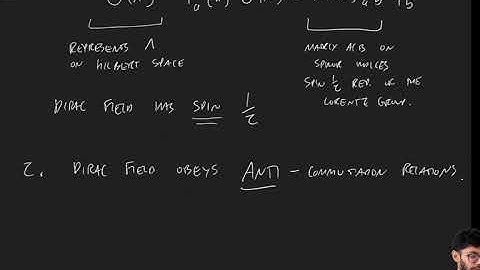 REPRESENTS Λ
ON HILBERT SPACE
MATRIX ACTS ON
SPINOR INDICES
SPIN 1/2 REP. OF THE
LORENTZ GROUP.
DIRAC FIELD HAS SPIN 1/2
2. DIRAC FIELD OBEYS ANTI - COMMUTATION RELATIONS.